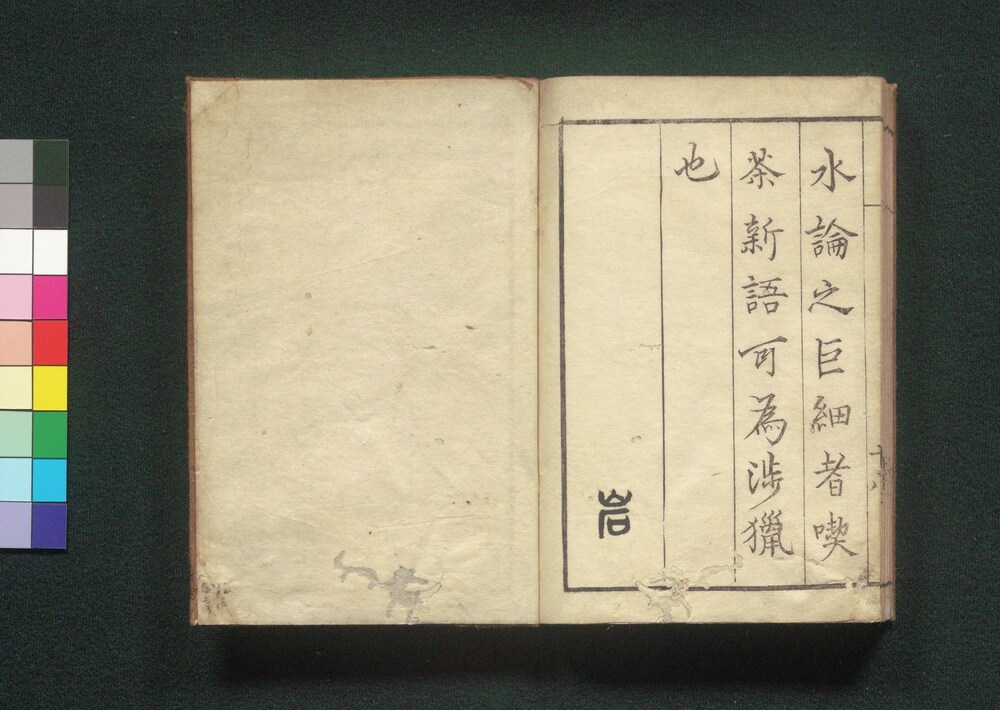 水論之巨細者喫
茶新語可為渉獵
也
岩
十八